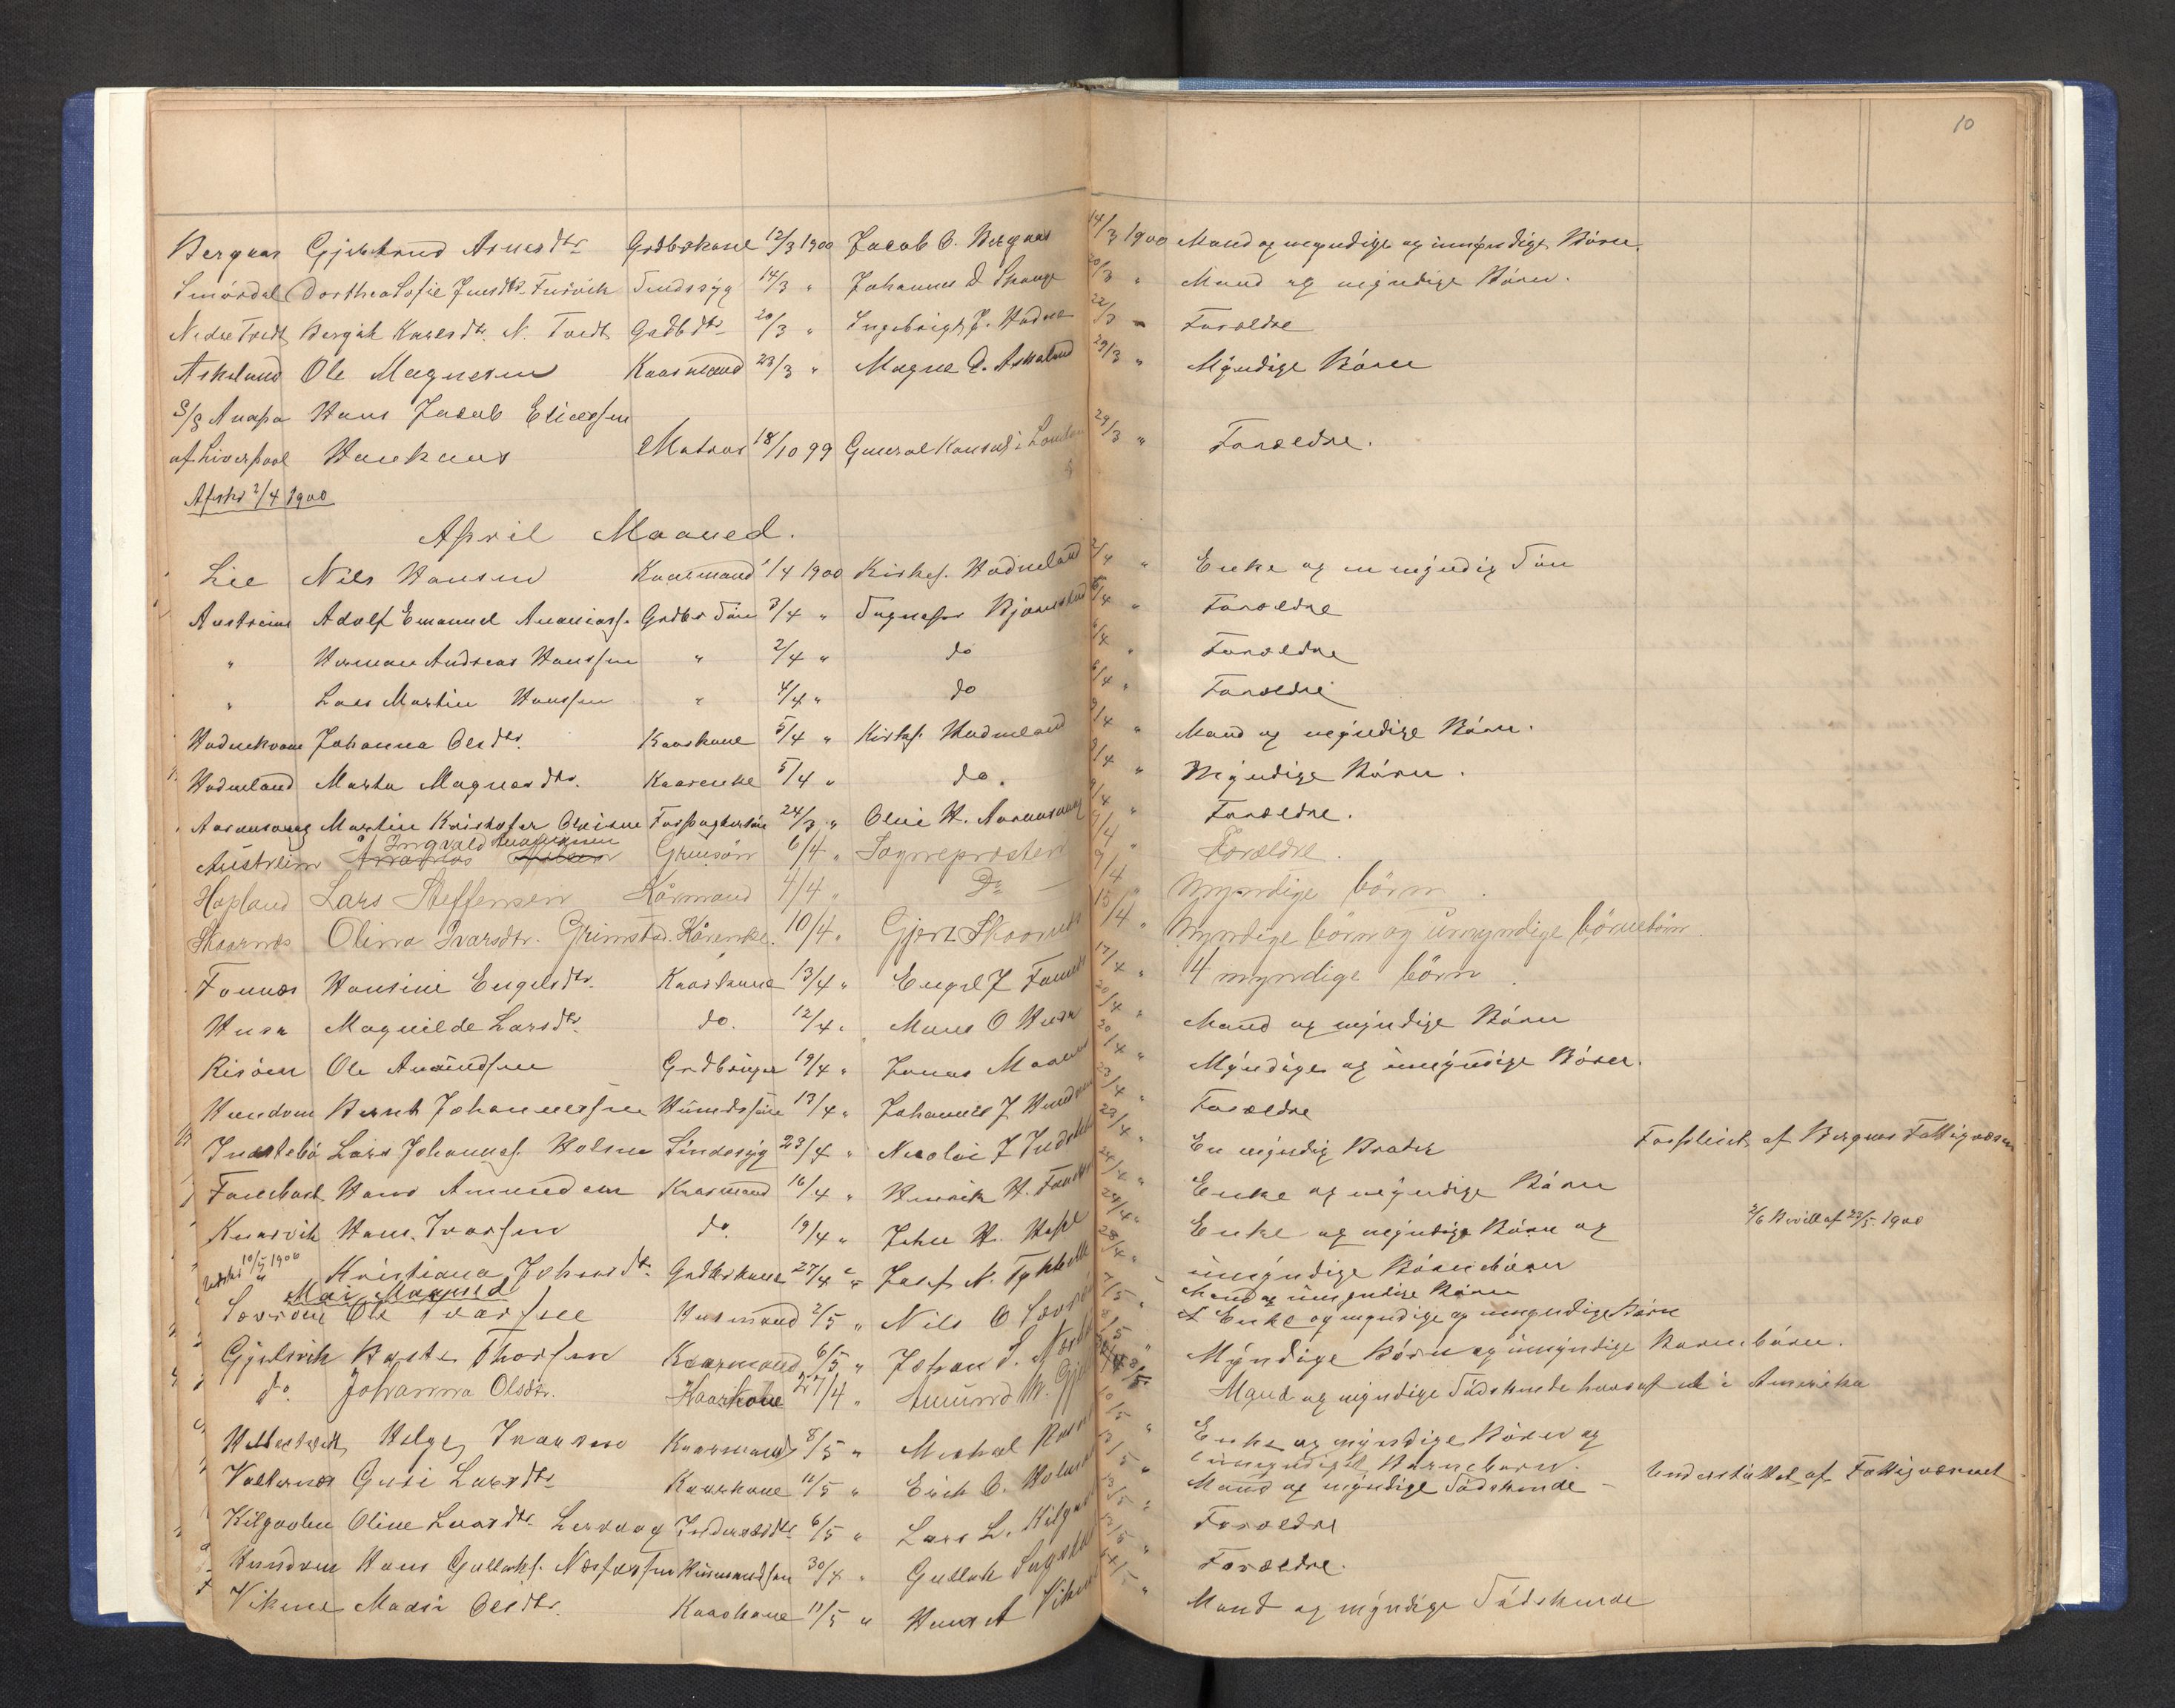 10
Bergaas Gjertrud Arnesdtr Grdbrkone 12/3 1900 Jacob O. Bergaas 14/3 1900 Mand og myndige og umyndige Börn.
Smördal Dorthea Sofie Jensdtr Sindssyg 14/3 " Johannes 20/3 " Mand og myndige Börn.
Nedre Tvedt Bergit Karlsdtr. N. Tvedt Grdbdtr 20/3 " Ingebrigt J. 22/3 " Forældre
Askeland Ole Magnesen Kaarmand 23/3 " Magne O. Askeland 29/3 " Myndige Börn
S/S af Liverpool Hans Jacob Haukaas Matros 18/10 99 General Konsul i London 29/3 " Forældre.
Afskr 2/4 1900
April Maaned.
Lie Nils Hansen Kaarmand 1/4 1900 Kirkes. Hodneland 2/4 " Enke og en myndig Sön
Austreim Adolf Emanuel Ananiass. Grdbr Sön 3/4 " Sognepr Bjørnstad 6/4 " Forældre
" Herman Andreas Hanssen " 2/4 " do 6/4 " Forældre
" Lars Martin Hanssen " 4/4 " do 6/4 " Forældre
Hodnekvam Johanna Olsdtr. Kaarkone 5/4 " Kirkes. Hodneland 9/4 " Mand og myndige Börn.
Hodneland Marta Magnesdtr. Kaarenke 5/4 " do. 9/4 " Myndige Börn.
Martin Kristofer Forpagtersön 24/3 " 9/4 " Forældre.
Austreim Ingvald Grmsön 6/4 " Sognepresten 9/4 " Forældre.
Hopland Lars Steffensen Kårmand 4/4 " Do 9/4 " Myndige börn.
Skaarnes Olina Ivarsdtr. Grimstad. Kårenke. 10/4 " Gjert Skaarnes 13/4 " Myndige börn og umyndige börnebörn.
Fonnes Hansine Engelsdtr. Kaarkone 13/4 " Engel J Fonnes 17/4 " 4 myndige börn.
Husa Magnilde Larsdtr. do. 12/4 " Mons O Husa 20/4 " Mand og myndige Börn
Risöen Ole Amundsen Grdbruger 19/4 " Jonas 20/4 " Myndige og umyndige Börn.
Hundven Bernt Johannessen Husmdssön 13/4 " Johannes J. Hundven 23/4 " Forældre
Indstebö Lars Johannes. Holme Sindssyg 23/4 " Nicolai J 23/4 " En myndig Broder Forpleiet af Bergens Fattigvæsen
Hans Amundsen Kaarmand 16/4 " Henrik H. 24/4 " Enke og myndige Börn
Knarvik Hans Ivarsen do. 19/4 " John H. 24/4 " Enke og myndige Börn og umyndige Börnebörn 2/6 Bevill af 23/5 1900
" Kristiana Johnsdtr. Grdbrkone 27/4 " Josef N. 28/4 " Mand og umyndige Börn
Indskr 10/5 1900
Mai Maaned
Sævröen Ole Ivarsen Husmand 2/5 " Nils O Sævröen 7/5 " Enke og myndige og umyndige Börn
Gjelsvik Börste Thorsen Kaarmand 6/5 " Johan 8/5 " Myndige Börn og umyndige Barnebörn.
do. Johanna Olsdtr. Kaarkone 27/4 " Amund 8/5 Mand og myndige Södskende hvoraf et i Amerika
Helge Ivarsen Kaarmand 8/5 " Michael 10/5 " Enke og myndige Börn og umyndiget Barnebarn.
Valternes Guri Larsdtr Kaarkone 11/5 " Erik O. 12/5 " Mand og myndige Södskende – Understöttet af Fattigvæsenet
Kilgavlen Oline Larsdtr Leirvaag 6/5 " Lars L. 13/5 " Forældre
Hundven Hans Husmandssön 30/4 " Gullak 13/5 " Forældre.
Vikene Madsi Olsdtr. Kaarkone 11/5 " Hans A 14/5 " Mand og myndige Södskende